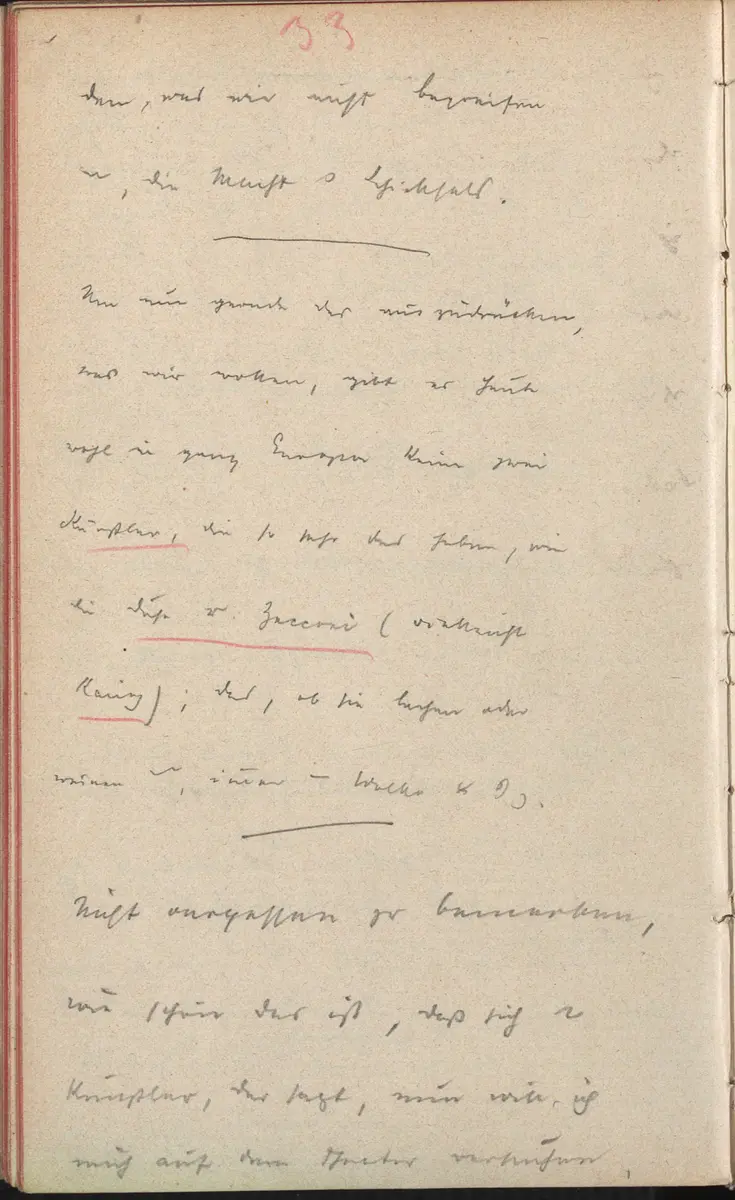 33
den, was wir nicht begreifen
, die Macht Schicksals.
Um nun gerade das auszudrücken,
was wir wollen, gibt es heute
wohl in ganz Europa keine zwei
Künstler, die so sehr das haben, wie
die Duse u. Zacconi (vielleicht
Kainz); das, ob sie lachen oder
weinen , immer Wolke
Nicht vergessen zu bemerken,
wie schön das ist, daß sich
Künstler, der sagt, nun will ich
mich auf dem Theater versuchen